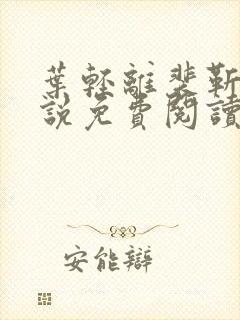 葉輕離裴靳
說免費閱讀
安能辯